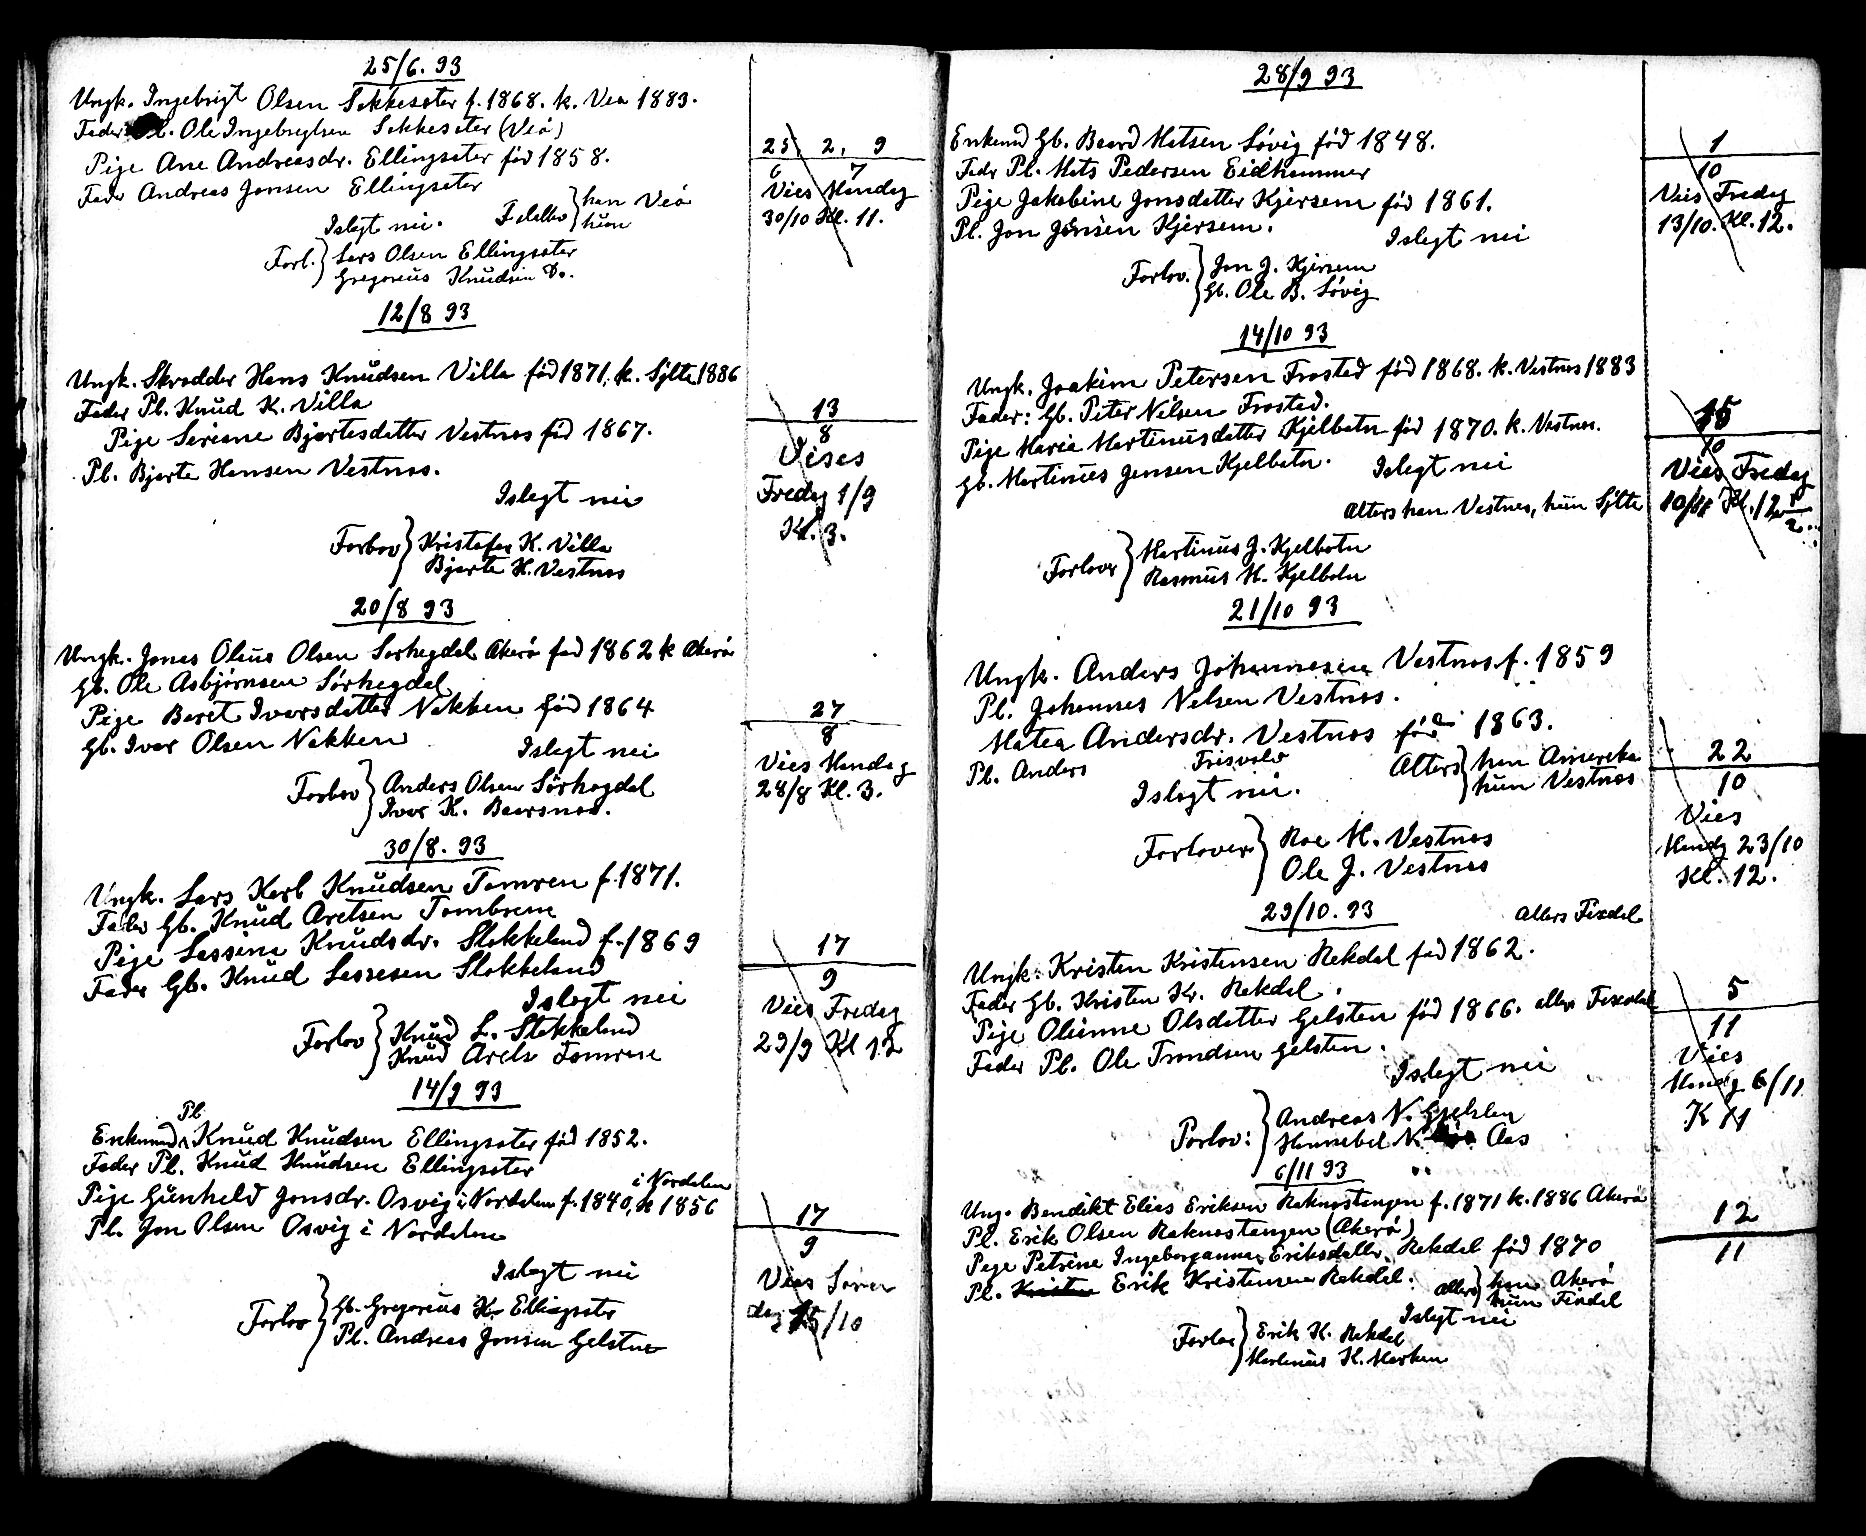 25/6. 93
Ungk. Ingebrigt Olsen Sekkesæter f. 1868. k. Veø 1883.
Fader Pl. Ole Ingebrigtsen Sekkesæter (Veö)
Pige Ane Andreasdr. Ellingsæter föd 1858.
Fader Andreas Jonsen Ellingsæter
Islegt nei. han Veö
hun
Forl. Lars Olsen Ellingsæter
Gregorius Knudsen Do.
25, 2, 9
6 7
Vies Mandag
30/10 Kl. 11.
12/8 93
Ungk. Skrædder Hans Knudsen Villa föd 1871, k. Sylte 1886
Fader Pl. Knud K. Villa
Pige Serine Bjertesdatter Vestnæs föd 1867.
Pl. Bjerte Hansen Vestnæs.
Islegt nei
Forlov Kristofer K. Villa
Bjerte H. Vestnæs
13
8
Vises
Fredag 1/9
Kl. 3.
20/8 93
Ungk. Jonas Olius Olsen Sørhegdal Akerö föd 1862 k Akerö
Gb. Ole Asbjørnsen Sörhegdal
Pige Beret Iversdatter Nakken föd 1864
Gb. Iver Olsen Nakken
Islegt nei
Forlov Anders Olsen Sörhegdal
Iver K. Baarsnæs.
27
8
Vies Mandag
28/8 Kl. 3.
30/8. 93
Ungk. Lars Karl Knudsen Tomren f. 1871.
Fader Gb. Knud Aretsen Tombrene
Pige Lassine Knudsdr. Stokkeland f. 1869
Fader Gb. Knud Lassesen Stokkeland
Islegt nei
Forlov Knud L. Stokkeland
Knud Arets Tomrene
17
9
Vies Fredag
29/9 Kl 12
14/9 93
Pl
Enkemand Knud Knudsen Ellingsæter föd 1852.
Fader Pl. Knud Knudsen Ellingsæter
i Nordalen
Pige Gunheld Jonsdr. Osvig i Nordalen f. 1840, k 1856
Pl. Jon Olsen Osvig i Nordalen
Islegt nei
Forlov Gb. Gregorius K. Ellingsæter
Pl. Andreas Jonsen Gelsten
17
9
Vies
dag 15/10
28/9 93
Enkemd Gb. Baard Matsen Søvig föd 1848.
Fader Pl. Mats Pedersen Eidhammer
Pige Jakobine Jonsdatter Kjersem föd 1861.
Pl. Jon Jensen Kjersem.
Islegt nei
Forlov. Jon J. Kjersem
Gb. Ole B. Søvig
1
10
Vies Fredag
13/10. Kl. 12.
14/10 93
Ungk. Joakim Petersen Frostad föd 1868. k. Vestnæs 1883
Fader: Gb. Peter Nilsen Frostad.
Pige Maria Martinusdatter Kjelbotn föd 1870. k. Vestnæs.
Gb. Martinus Jensen Kjelbotn. Islegt nei
Alters han Vestnæs, hun Sylte
Forlover Martinus J. Kjelbotn
Rasmus M. Kjelbotn
15
10
Vies Fredag
10/11 Kl. 12 1/2
21/10 93
Ungk. Anders Johannesen Vestnæs f. 1859
Pl. Johannes Nelsen Vestnæs.
Matea Andersdr. Vestnæs föd 1863.
Pl. Anders Frisvold
Alters han Amerika
hun Vestnæs
Islegt nei.
Forlover Roe M. Vestnæs
Ole J. Vestnæs
22
10
Vies
Mandg 23/10
Kl. 12.
29/10. 93 Alters Fixdal
Ungk. Kristen Kristensen Rekdal föd 1862.
Fader Gb. Kristen Kr. Rekdal.
Pige Olianne Olsdatter Gelsten föd 1866. alters Fixdal
Fader Pl. Ole Trondsen Gelsten.
Islegt nei
Forlov: Andreas N. Gjelsten
Hannibal N. Aas
5
11
Vies
Mandg 6/11
K 11
6/11 93
Ung. Bendikt Elias Eriksen Raknæstangen f. 1871 k. 1886 Akerö
Pl. Erik Olsen Raknæstangen (Akerö)
Pige Petrine Ingeborganna Eriksdatter Rekdal föd 1870
Pl. Kristen Erik Kristensen Rekdal.
alters han Akerö
hun Fixdal
Islegt nei
Forlov Erik K. Rekdal
Martinus K. Harken
12
11